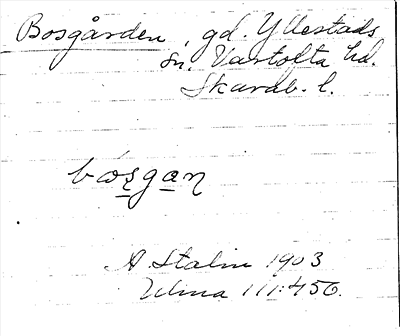 Bosgården, gd. Yllestads
sn, Vartofta hd.
Skarab. l.
bo̤sgan
A. Stalin 1903
Ulma 111:456.